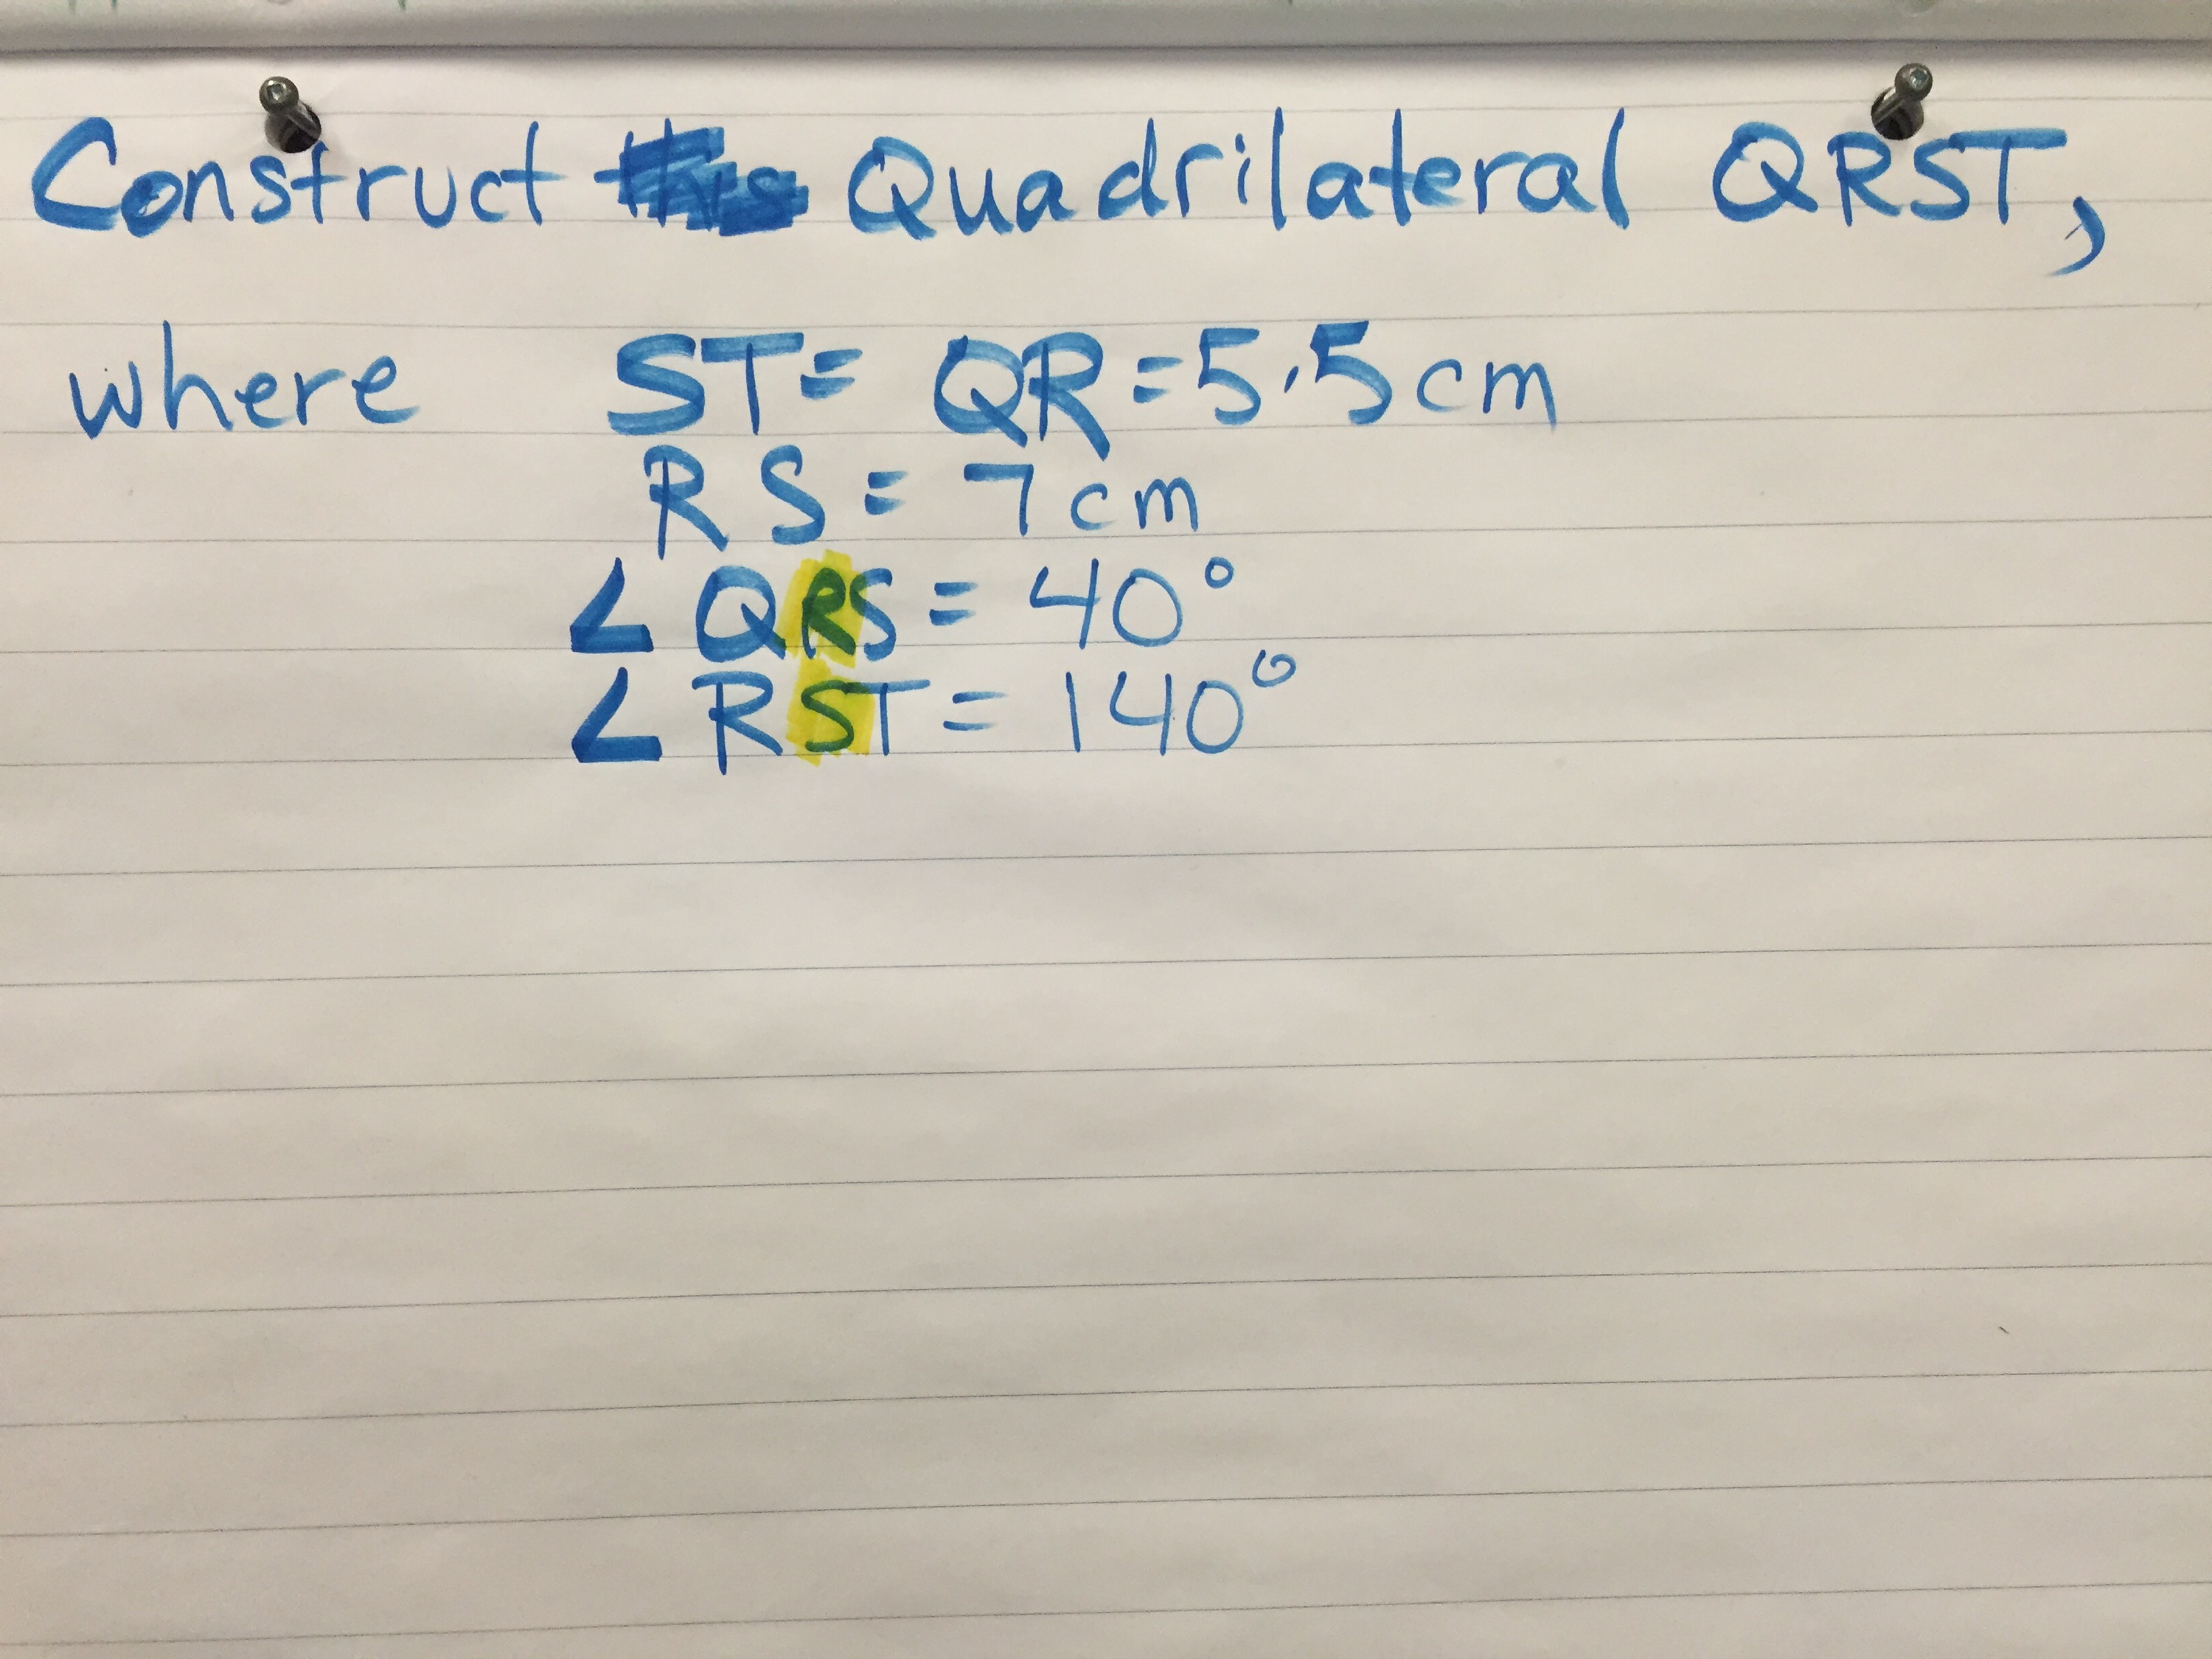 Construct Quadrilateral QRST,
where ST= QR=5.5cm
RS= 7cm
∠QRS= 40°
∠RST= 140°